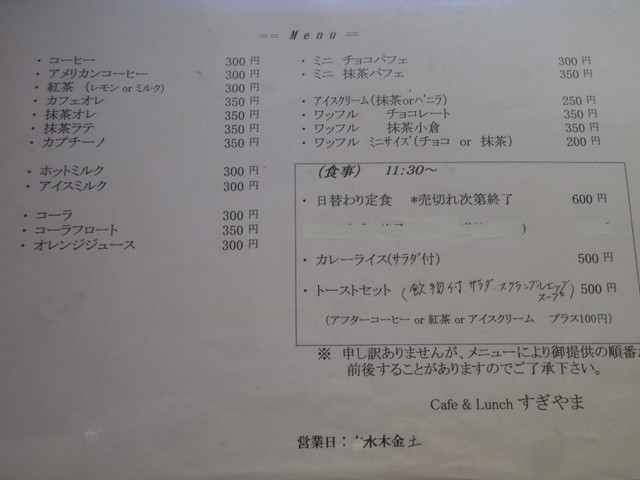 == Menu ==
・ コーヒー 300 円
・ アメリカンコーヒー 300 円
・ 紅茶 (レモン or ミルク) 300 円
・ カフェオレ 350 円
・ 抹茶オレ 350 円
・ 抹茶ラテ 350 円
・ カプチーノ 350 円
・ ホットミルク 300 円
・ アイスミルク 300 円
・ コーラ 300 円
・ コーラフロート 350 円
・ オレンジジュース 300 円
・ ミニ チョコパフェ 300 円
・ ミニ 抹茶パフェ 350 円
・ アイスクリーム(抹茶orバニラ) 250 円
・ ワッフル チョコレート 350 円
・ ワッフル 抹茶小倉 350 円
・ ワッフル ミニサイズ(チョコ or 抹茶) 200 円
(食事) 11:30～
・ 日替わり定食 *売切れ次第終了 600 円
・ カレーライス(サラダ付) 500 円
・ トーストセット (飲物付 サラダ・スクランブルエッグ スープ) 500 円
(アフターコーヒー or 紅茶 or アイスクリーム プラス100円)
※ 申し訳ありませんが、メニューにより御提供の順番が
前後することがありますのでご了承下さい。
Cafe & Lunch すぎやま
営業日： 水木金土